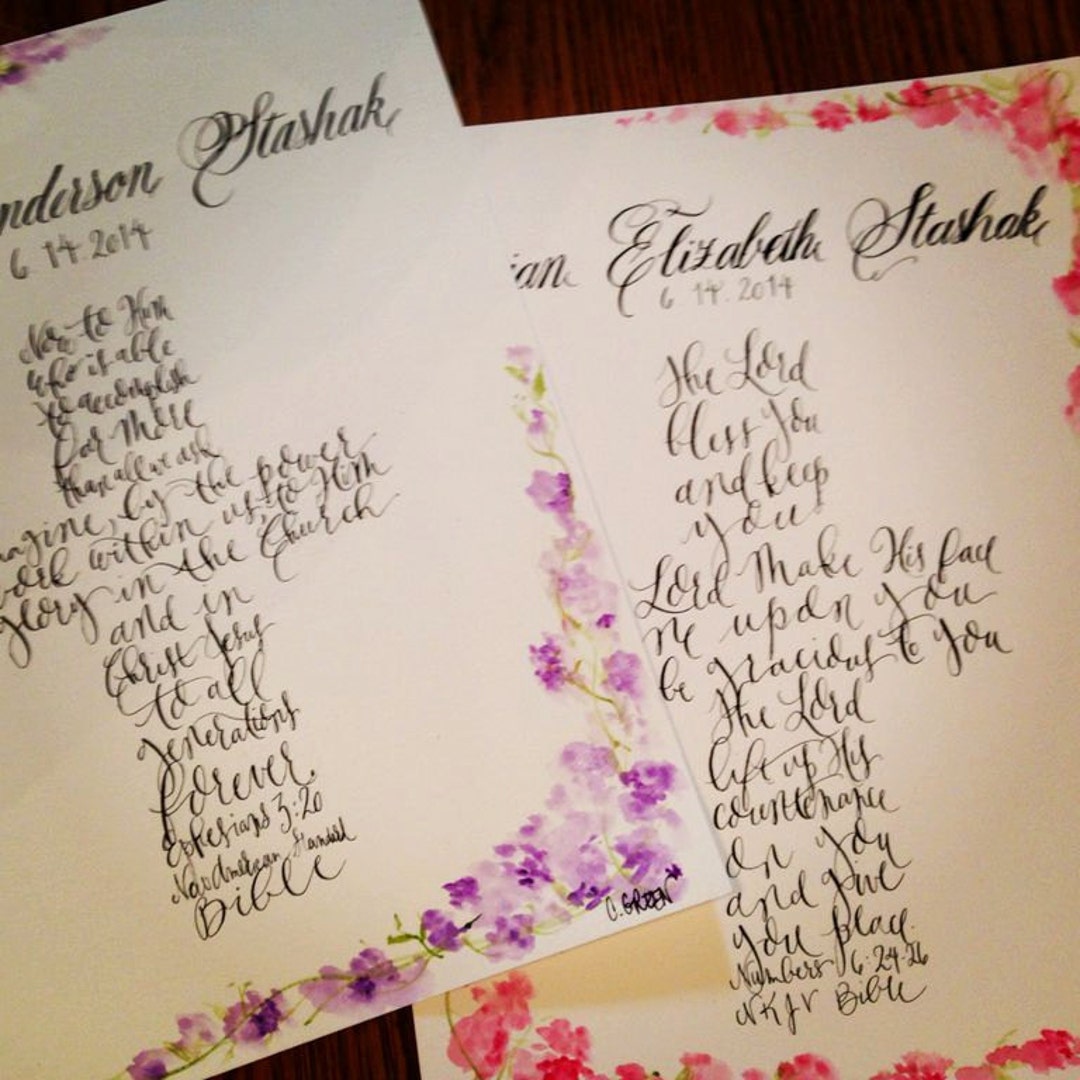 nderson Stashak
6 14 2014
Now to Him
who is able
to accomplish
Far More
than all we ask
magine, by the power
work within us, to Him
glory in the Church
and in
Christ Jesus
to all
generations
Forever.
Ephesians 3:20
New American Standard
Bible
C. GREEN
ian Elizabeth Stashak
6 14. 2014
The Lord
bless you
and keep
you
Lord Make His fac
ne upon you
be gracious to you
The Lord
lift up His
countenance
on you
and give
you peace.
Numbers 6:24-26
NKJV Bible